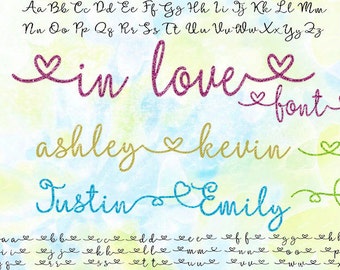 Aa Bb Cc Dd Ee Ff Gg Hh Ii Jj Kk Ll Mm
Nn Oo Pp Qq Rr Ss Tt Uu Vv Ww Xx Yy Zz
in love
font
ashley kevin
Justin Emily
a a b b c c d d e e f f g g h h